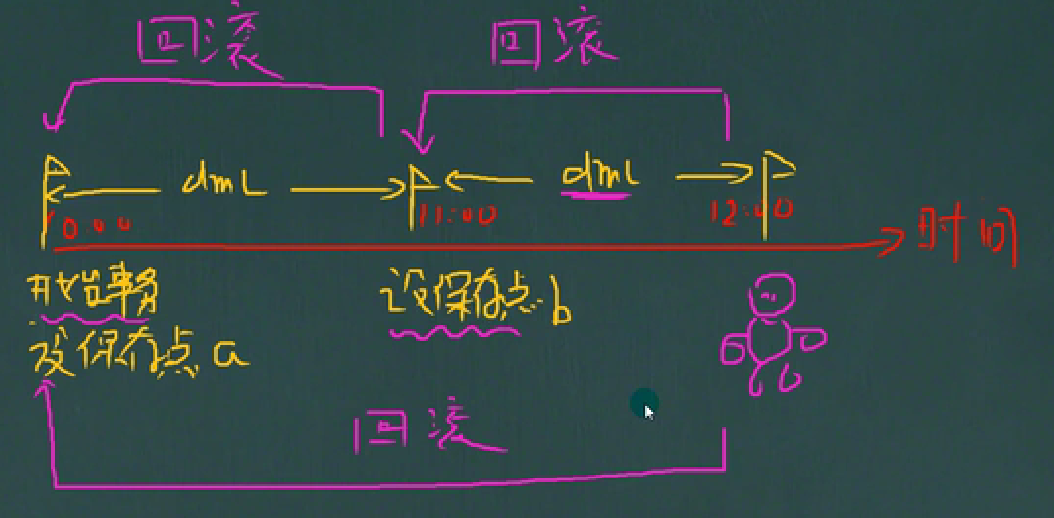 回滚 回滚
dml dml
10:00 11:00 12:00 时间
开始事务 设保存点.b
设保存点 a
回滚